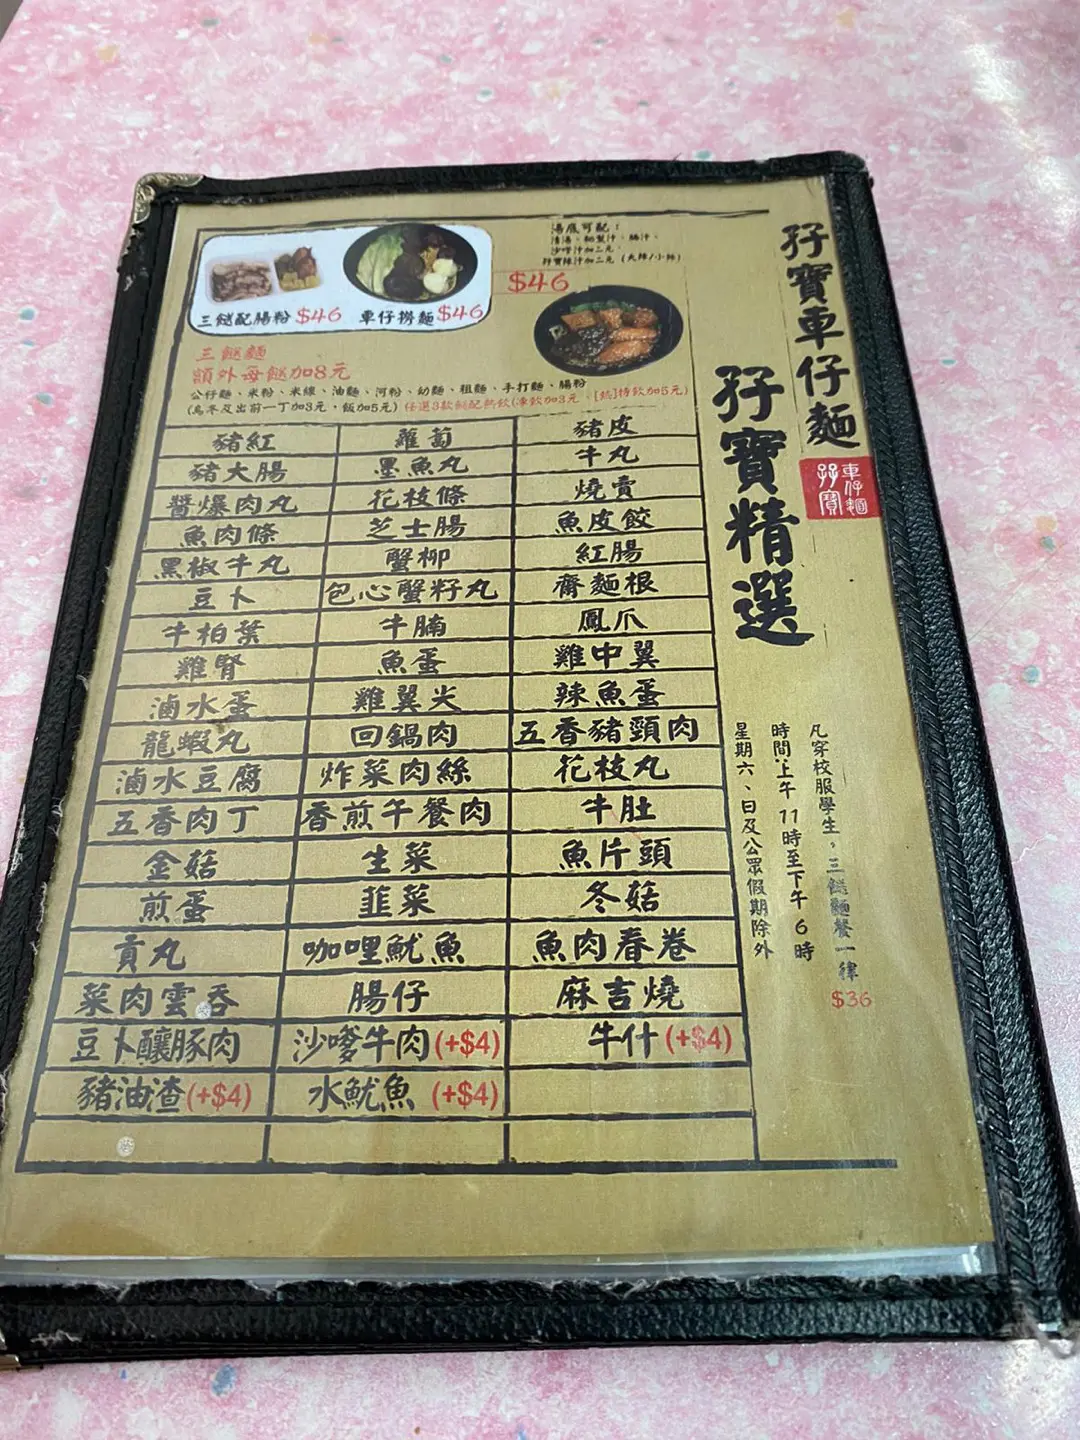 孖寶車仔麵
孖寶
車仔麵
孖寶精選
湯底可配：
清湯、秘製汁、腩汁、
沙嗲汁加二元、
孖寶辣汁加二元（大辣/小辣）
$46
三餸配腸粉 $46
車仔撈麵 $46
三餸麵
額外每餸加8元
公仔麵、米粉、米線、油麵、河粉、幼麵、粗麵、手打麵、腸粉
(烏冬及出前一丁加3元，飯加5元) 任選3款餸配熱飲(凍飲加3元，[純]特飲加5元)
豬紅 蘿蔔 豬皮
豬大腸 墨魚丸 牛丸
醬爆肉丸 花枝條 燒賣
魚肉條 芝士腸 魚皮餃
黑椒牛丸 蟹柳 紅腸
豆卜 包心蟹籽丸 齋麵根
牛柏葉 牛腩 鳳爪
雞腎 魚蛋 雞中翼
滷水蛋 雞翼尖 辣魚蛋
龍蝦丸 回鍋肉 五香豬頸肉
滷水豆腐 炸菜肉絲 花枝丸
五香肉丁 香煎午餐肉 牛肚
金菇 生菜 魚片頭
煎蛋 韮菜 冬菇
貢丸 咖哩魷魚 魚肉春卷
菜肉雲吞 腸仔 麻吉燒
豆卜釀豚肉 沙嗲牛肉(+$4) 牛什(+$4)
豬油渣(+$4) 水魷魚(+$4)
凡穿校服學生，三餸麵餐一律$36
時間上午11時至下午6時
星期六、日及公眾假期除外